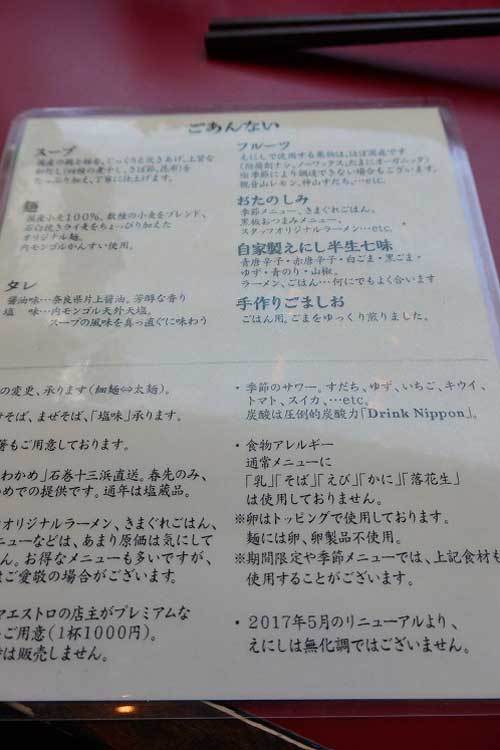 ごあんない
スープ
国産の鶏と豚を、じっくりと炊きあげ、上質な
たっぷり加え、丁寧に仕上げます。
麺
国産小麦100%。数種の小麦をブレンド、
石臼挽きライ麦をちょっぴり加えた
オリジナル麺。
内モンゴルかんすい使用。
タレ
醤油味…奈良県片上醤油。芳醇な香り
塩 味…内モンゴル天外天塩。
スープの風味を真っ直ぐに味わう
フルーツ
えにしで使用する果物は、ほぼ国産です
(防腐剤ナシ、ノーワックス、たまにオーガニック)
※季節により調達できない場合もございます。
観音山レモン、神山すだち、…etc.
おたのしみ
季節メニュー、きまぐれごはん。
黒板おつまみメニュー。
スタッフオリジナルラーメン…etc.
自家製えにし半生七味
青唐辛子・赤唐辛子・白ごま・黒ごま・
ゆず・青のり・山椒。
ラーメン、ごはん…何にでもよく合います
手作りごましお
ごはん用。ごまをゆっくり煎りました。
の変更、承ります(細麺⇔太麺)。
けそば、まぜそば、「塩味」承ります。
箸もご用意しております。
わかめ」石巻十三浜直送。春先のみ、
めでの提供です。通年は塩蔵品。
オリジナルラーメン、きまぐれごはん、
ニューなどは、あまり原価は気にして
ん。お得なメニューも多いですが、
はご愛敬の場合がございます。
マエストロの店主がプレミアムな
ご用意(1杯1000円)。
は販売しません。
・季節のサワー。すだち、ゆず、いちご、キウイ、
トマト、スイカ、…etc.
炭酸は圧倒的炭酸力「Drink Nippon」。
・食物アレルギー
通常メニューに
「乳」「そば」「えび」「かに」「落花生」
は使用しておりません。
※卵はトッピングで使用しております。
麺には卵、卵製品不使用。
※期間限定や季節メニューでは、上記食材も
使用することがございます。
・2017年5月のリニューアルより、
えにしは無化調ではございません。